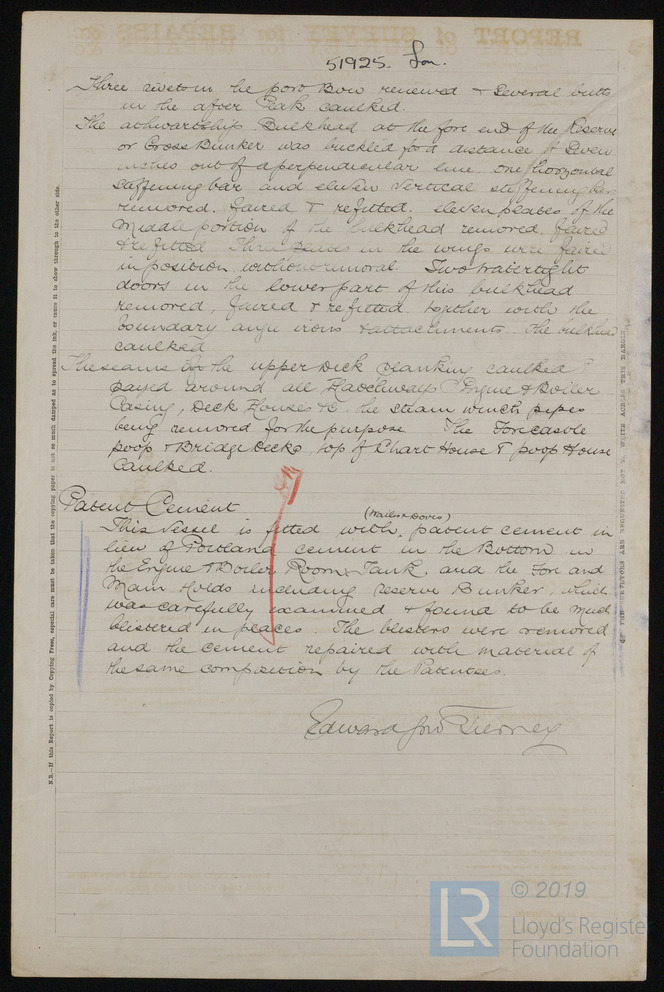 51925. Lon.
Three rivets in the port Bow renewed & Several butts
in the after Peak caulked.
The athwartship Bulkhead at the fore end of the Reserve
or Cross Bunker was buckled for a distance of Seven
inches out of a perpendicular line. one horizontal
stiffening bar and eleven vertical stiffening bars
removed. faired & refitted. eleven plates of the
Middle portion of the bulkhead removed faired
& refitted Three plates in the wings were faired
in position without removal. Two watertight
doors in the lower part of this bulkhead
removed, faired & refitted together with the
boundary angle irons & attachments. the bulkhead
caulked
The seams of the upper Deck planking caulked &
payed around all Hatchways Engine & Boiler
Casing, Deck Houses &c. the steam winch pipes
being removed for the purpose The Forecastle
poop & Bridge Decks, top of Chart House & poop House
Caulked.
Patent Cement
(Wailes & Doves)
This Vessel is fitted with patent cement in
lieu of Portland cement in the Bottom in
the Engine & Boiler Room & Tank, and the Fore and
Main Holds including reserve Bunker, which
was carefully examined & found to be much
blistered in places. The blisters were removed
and the cement repaired with material of
the same composition by the Patentees.
Edward Jno Tierney
N.B.—If this Report is copied by Copying Press, especial care must be taken that the copying paper is not so much damped as to spread the ink, or cause it to show through to the other side.
SURVEYORS ARE REQUESTED NOT TO WRITE ACROSS THIS MARGIN.
REPORT of SURVEY for REPAIRS
LR
© 2019
Lloyd's Register
Foundation